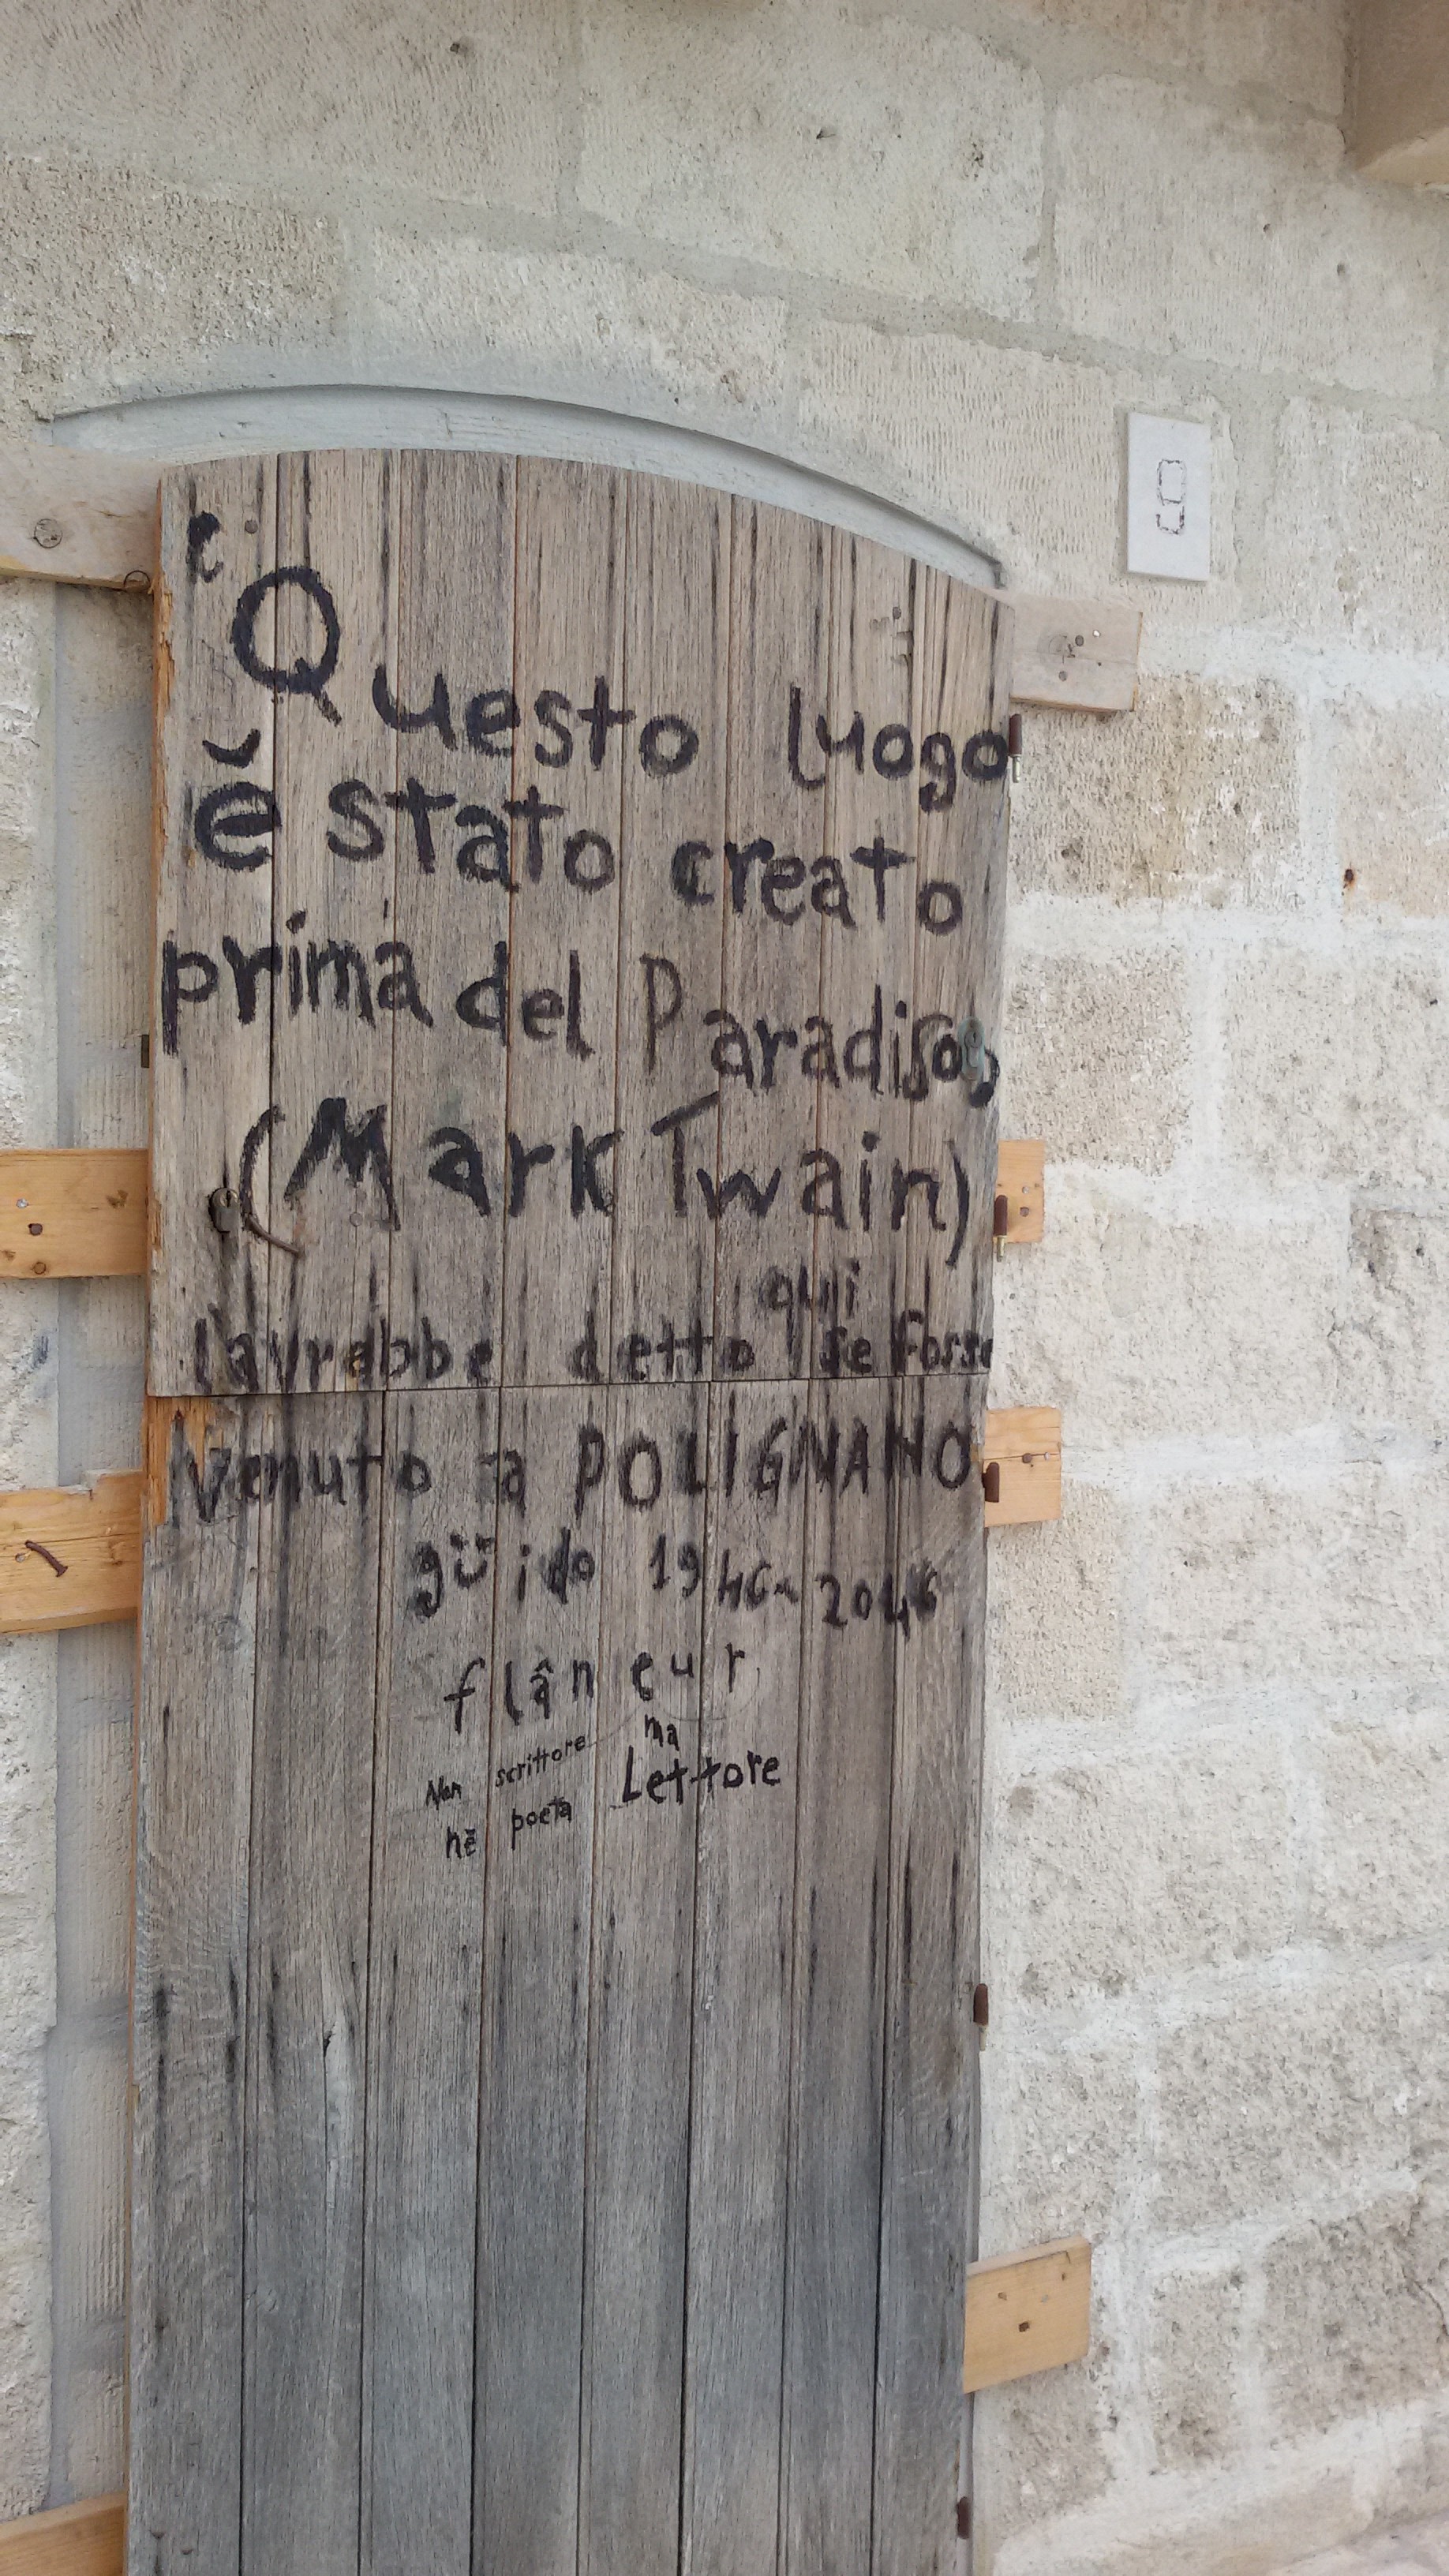 9
Questo luogo
ĕ stato creato
prima del Paradiso
(Mark Twain)
qui
lavrebbe detto se fosse
venuto a POLIGNANO
güido 1946~2046
flâneur
Non scrittore ma
nē poeta Lettore